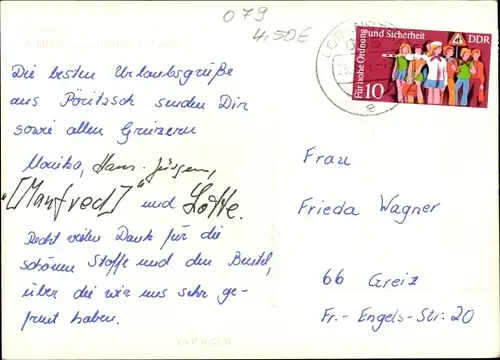 079
4,50€
Für hohe Ordnung und Sicherheit
DDR
10
Die besten Urlaubsgrüße
aus Pöritzsch senden Dir
sowie allen Greizern
Monika, Hans-Jürgen,
"[Manfred]" und Lotte.
Recht vielen Dank für die
schönen Stoffe und den Beutel,
über die wir uns sehr ge-
freut haben.
Frau
Frieda Wagner
66 Greiz
Fr.-Engels-Str. 20